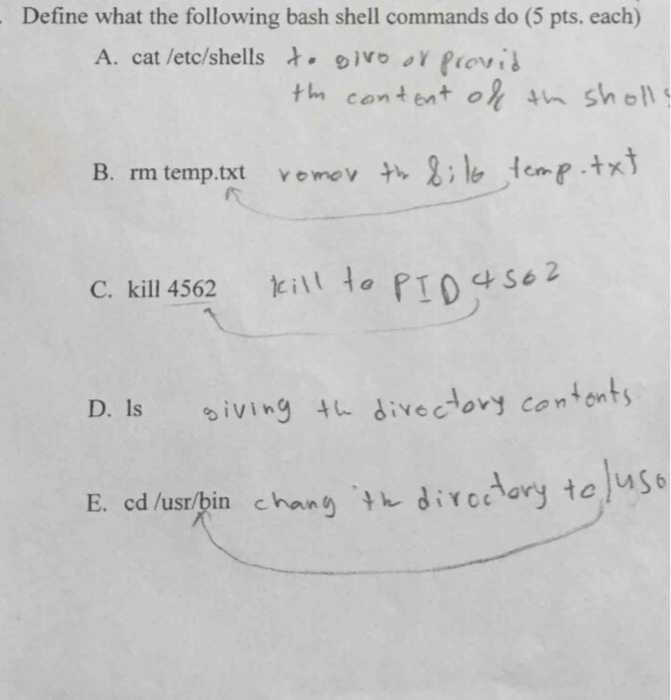 Define what the following bash shell commands do (5 pts. each)
A. cat /etc/shells to givo or provid
the content of the sholls
B. rm temp.txt romov the filo temp.txt
C. kill 4562 kill to PID 4562
D. ls giving the directory contents
E. cd /usr/bin chang the diroctory to /uso